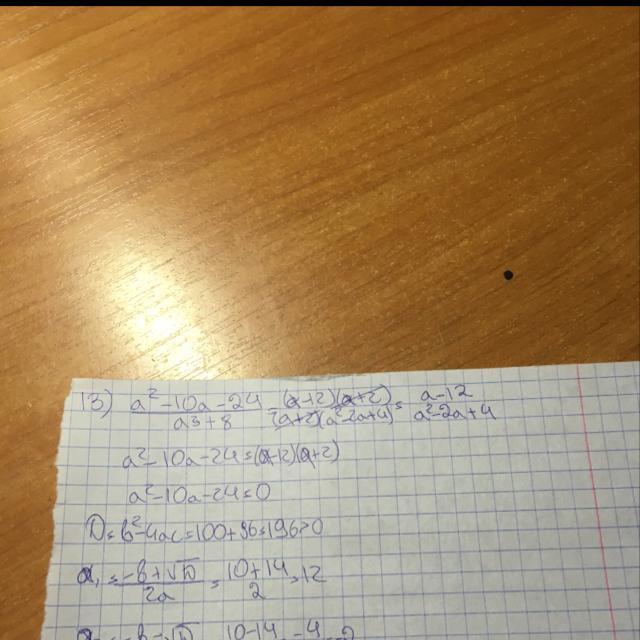 13) (a² - 10a - 24)/(a³ + 8) = (a-12)(a+2)/(a+2)(a²-2a+4) = (a-12)/(a²-2a+4)
a² - 10a - 24 = (a-12)(a+2)
a² - 10a - 24 = 0
D = b² - 4ac = 100 + 96 = 196 > 0
a₁ = (-b + √D)/2a = (10+14)/2 = 12